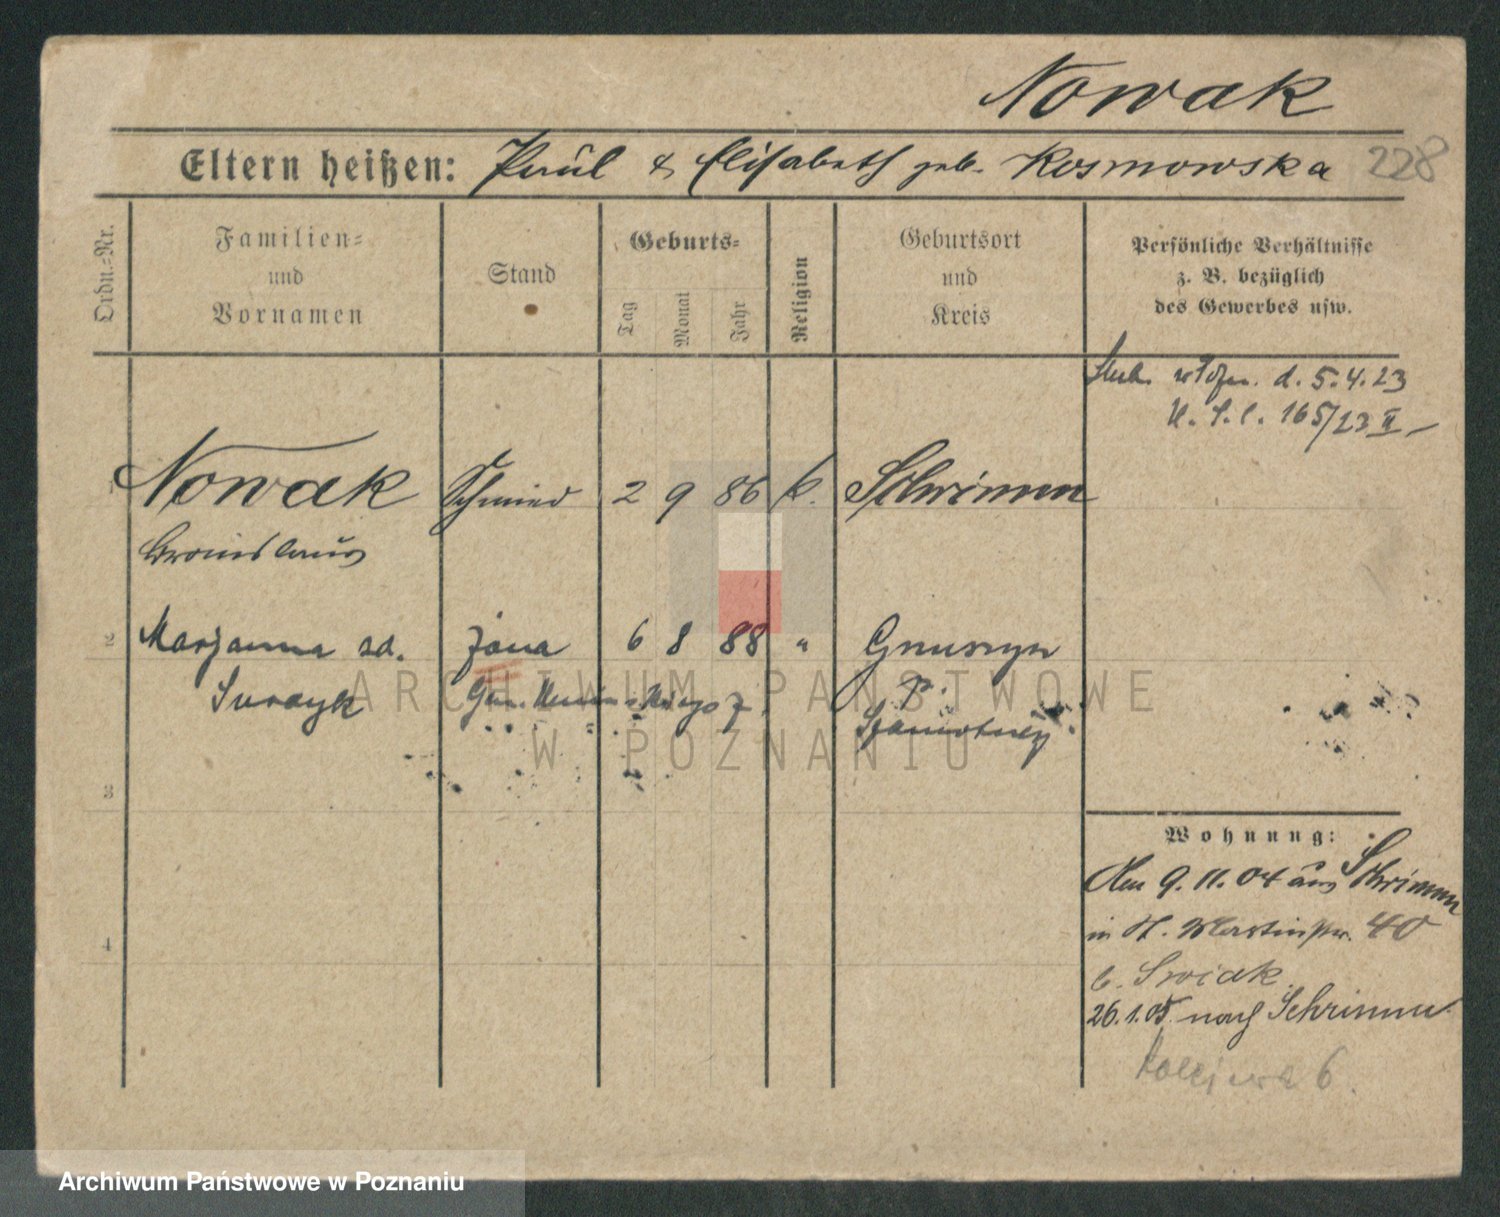 Nowak
Eltern heißen: Paul & Elisabeth geb. Kosmowska 228
Ordn.-Nr.
Familien-
und
Vornamen
Stand
Geburts-
Tag
Monat
Jahr
Religion
Geburtsort
und
Kreis
Persönliche Verhältnisse
z. B. bezüglich
des Gewerbes usw.
d. 5.4.23
165/23 II
1 Nowak Schmied 2 9 86 k. Schrimm
Bronislaus
2 Marjanna żona 6 8 88 " Gnuszyn
p.
3
4
Wohnung:
Am 9.11.04 aus Schrimm
in St. Martinstr. 40
b. Swiak
26.1.05. nach Schrimm
6.
ARCHIWUM PAŃSTWOWE
W POZNANIU
Archiwum Państwowe w Poznaniu